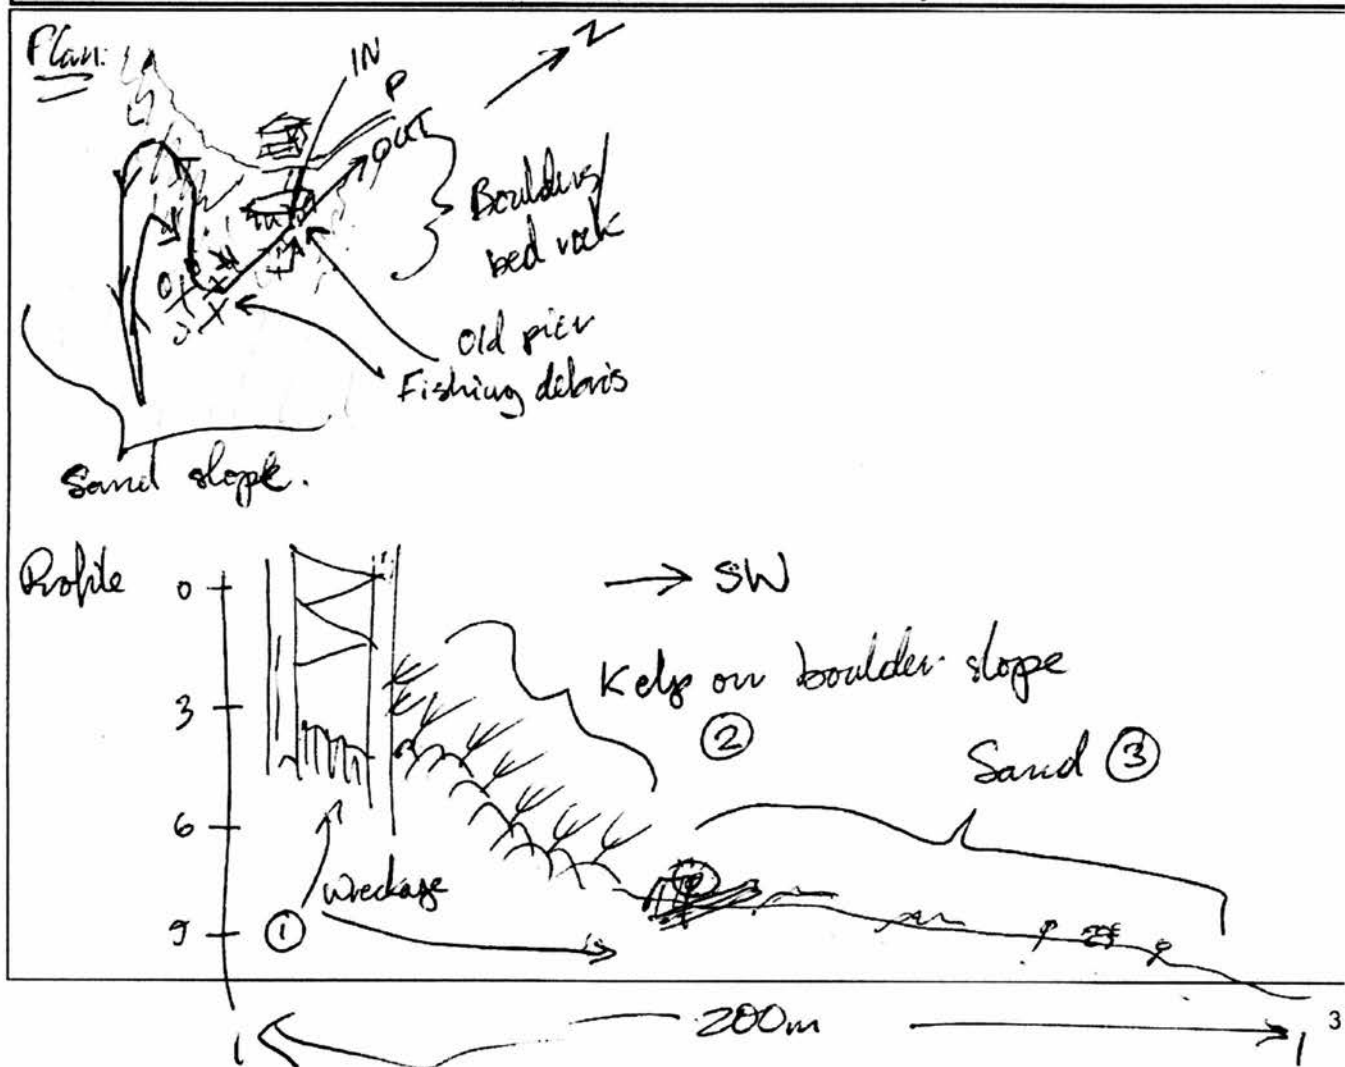 Plan:
IN
P
OUT
N
Boulders/
bed rock
Old pier
Fishing debris
Sand slope.
Profile
0
→ SW
Kelp on boulder slope
②
3
Sand ③
6
Wreckage
9
①
200m
3